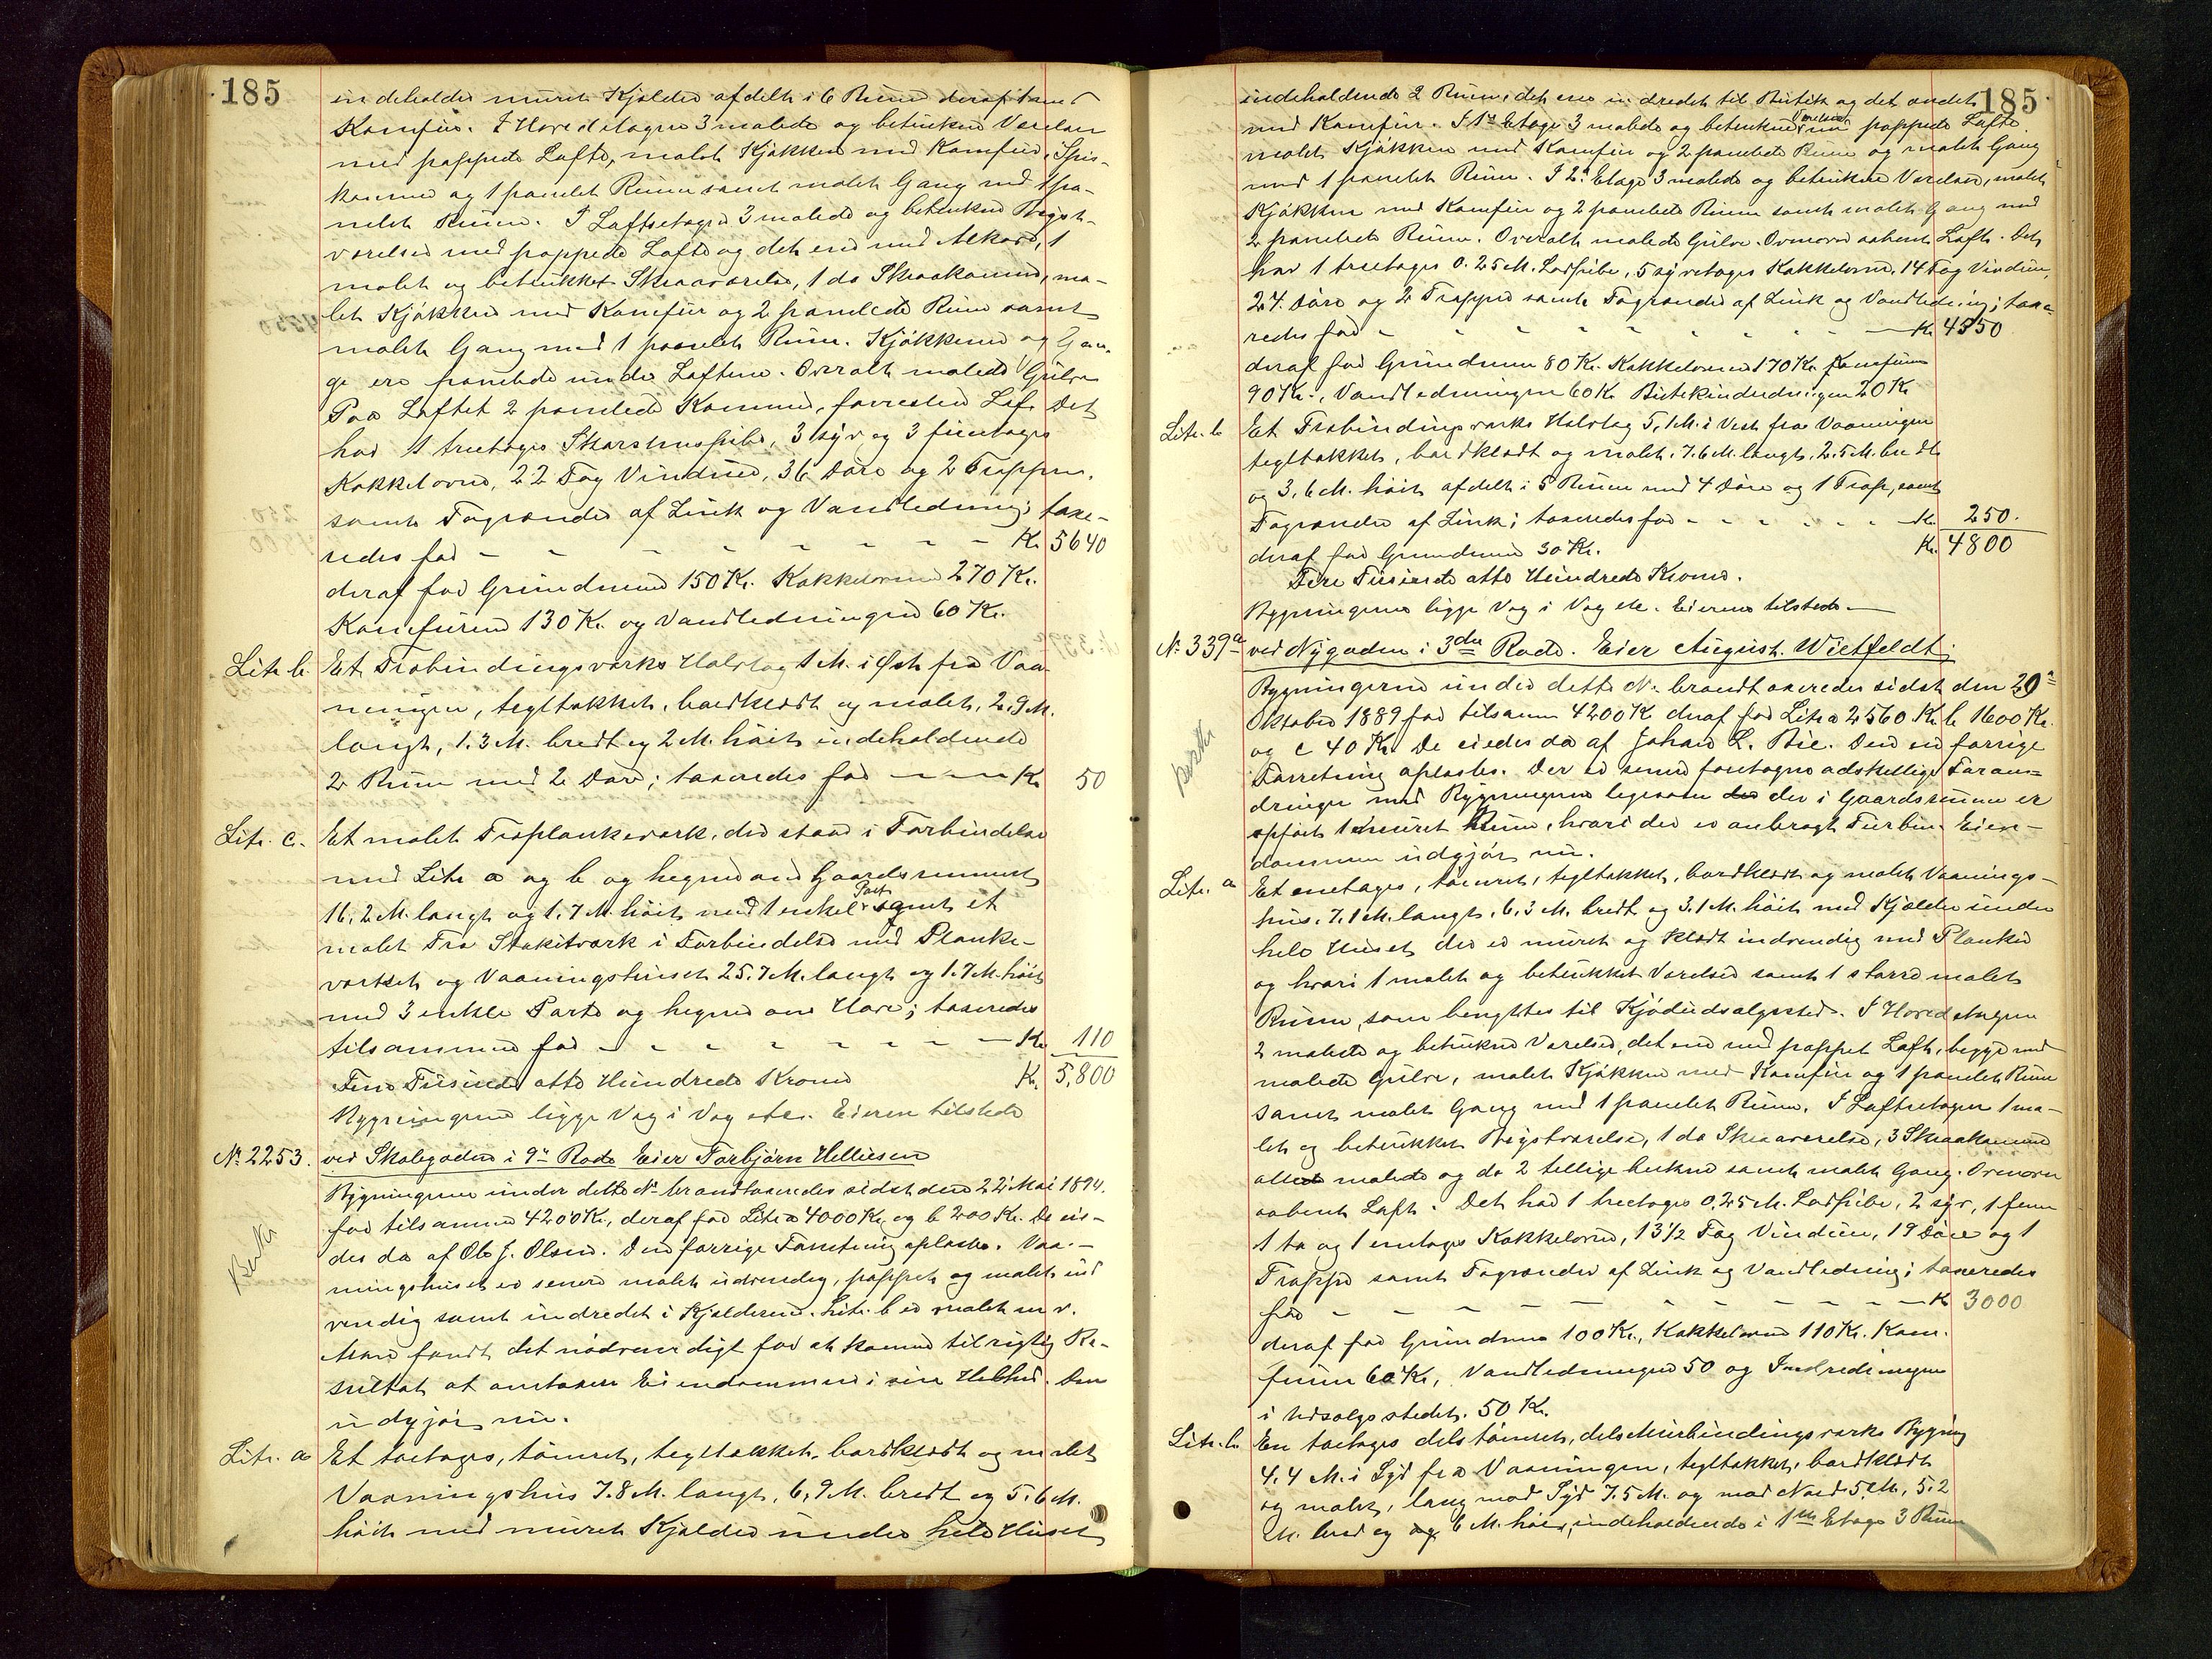 185
indeholder muret Kjelder afdelt i 6 Rum deraf 1 med
Komfur. I Hovedetagen 3 malede og betrukne Værelser
med pappede Lofte, malet Kjøkken med Komfur, Spis-
kammer og 1 panelet Rum samt malet Gang med 1 pa-
nelet Rum. I Loftsetagen 3 malede og betrukne Bryst-
værelser med pappede Lofte og det ene med Alkove, 1
malet og betrukket Skraaværelse, 1 do Skraakammer, ma-
let Kjøkken med Komfur og 2 panelede Rum samt
malet Gang med 1 panelet Rum. Kjøkkenerne og Gan-
ge ere panelede under Loftene. Overalt malede Gulve
Paa Loftet 2 panelede Kammer, forresten Loft. Det
har 1 treetages Skorstenspibe, 3 syv og 3 fireetages
Kakkelovne, 22 Fag Vinduer, 36 Døre og 2 Trapper,
samt Tagrender af Zink og Vandledning; taxe-
redes for - - - - - - Kr. 5640
deraf for Grundmuren 150 Kr. Kakkelovnene 270 Kr.
Komfurene 130 Kr. og Vandledningen 60 Kr.
Litr. b. Et Træbindingsværks Halvtag 1 M. i Øst fra Vaa-
ningen, tegltækket, bordklædt og malet, 2,9 M.
langt, 1.3 M. bredt og 2 M. høit indeholdende
2 Rum med 2 Døre; taxeredes for - - - Kr. 50
Litr. c. Et malet Træplankeværk, der staar i Forbindelse
med Litr a og b og hegner om Gaardsrummet
16,2 M. langt og 1,7 M. høit med 1 enkel Port samt et
malet Træ Stakitværk i Forbindelse med Planke-
værket og Vaaningshuset 25.7 M. langt og 1.7 M. høit
med 3 enkle Porte og hegner om Have; taxeredes
tilsammen for - - - - - - Kr. 110
Fem Tusinde otte Hundrede Kroner Kr. 5,800
Bygningerne ligge Væg i Væg etc. Eieren tilstede
No 2253. ved Skolegaden i 9de Rode Eier Torbjørn Helliesen
Bygningerne under dette No brandtaxeredes sidst den 22 Mai 1894.
for tilsammen 4200 Kr., deraf for Litr a 4000 Kr. og b 200 Kr. De eie-
des da af Ole J. Olsen. Den forrige Forretning oplæstes. Vaa-
ningshuset er senere malet udvendig, pappet og malet ind
vendig samt indredet i Kjelderen. Litr. b er malet m. v.
Man fandt det nødvendigt for at komme til rigtig Re-
sultat at omtaxere Eiendommen i sin Helhed. Den
udgjør nu.
Litr. a Et toetages, tømret, tegltækket, bordklædt og malet
Vaaningshus 7.8 M. langt, 6,9 M. bredt og 5.6 M.
høit med muret Kjelder under hele Huset
185
indeholdende 2 Rum, det ene indredet til Butik og det andet
med Komfur. I 1ste Etage 3 malede og betrukne Værelser med pappede Lofte
malet Kjøkken med Komfur og 2 panelede Rum og malet Gang
med 1 panelet Rum. I 2d Etage 3 malede og betrukne Værelser, malet
Kjøkken med Komfur og 2 panelede Rum samt malet Gang med
2 panelede Rum. Overalt malede Gulve. Ovenover aabent Loft. Det
har 1 treetages 0.25 M. Lodpibe, 5 syvetages Kakkelovne, 14 Fag Vinduer,
24 Døre og 2 Trapper samt Tagrender af Zink og Vandledning; taxe-
redes for - - - - - - Kr. 4550
deraf for Grundmuren 80 Kr. Kakkelovnene 170 Kr. Komfurene
90 Kr., Vandledningen 60 Kr. Butikindredningen 20 Kr
Litr. b Et Træbindingsværks Halvtag 5,1 M. i Vest fra Vaaningen
tegltækket, bordklædt og malet. 7.6 M. langt, 2.5 M. bredt
og 3,6 M. høit afdelt i 5 Rum med 4 Døre og 1 Trap, samt
Tagrender af Zink; taxeredes for - - - - Kr. 250.
deraf for Grundmuren 30 Kr. Kr. 4800
Fire Tusinde otte Hundrede Kroner.
Bygningerne ligge Væg i Væg etc. Eieren tilstede
No 339a ved Nygaden i 3die Rode. Eier August Wietfeldt.
Bygningerne under dette No brandtaxeredes sidst den 29
Oktober 1889 for tilsammen 4200 Kr deraf for Litr a 2560 Kr. b 1600 Kr.
og c 40 Kr. De eiedes da af Johan L. Bie. Den
forrige
Forretning oplæstes. Der er senere foretagne adskillige Foran-
dringer med Bygningerne ligesom der i Gaardsrummet er
opført 1 muret Rum, hvori der er anbragt Turbin. Eien-
dommen udgjør nu.
Litr. a Et enetages, tømret, tegltækket, bordklædt og malet Vaanings-
hus. 7.1 M. langt, 6,3 M. bredt og 3.1 M. høit med Kjelder under
hele Huset der er muret og klædt indvendig med Planker
og hvori 1 malet og betrukket Værelse samt 1 større malet
Rum, som benyttes til Kjødudsalgssted. I Hovedetagen
2 malede og betrukne Værelser, det ene med pappet Loft, begge med
malede Gulve, malet Kjøkken med Komfur og 1 panelet Rum
samt malet Gang med 1 panelet Rum. I Loftsetagen 1 ma-
let og betrukket Brystværelse, 1 do Skraaværelse, 3 Skraakammer
alle malede og de 2 tillige betrukne samt malet Gang. Ovenover
aabent Loft. Det har 1 treetages 0,25 M. Lodpibe, 2 syv, 1 fem
1 to og 1 enetages Kakkelovne, 13 1/2 Fag Vinduer, 19 Døre og 1
Trappe samt Tagrender af Zink og Vandledning; taxeredes
for - - - - - - Kr 3000
deraf for Grundmuren 100 Kr., Kakkelovnene 110 Kr. Kom-
furen 60 Kr., Vandledningen 50 og Indredningen
i Udsalgsstedet. 50 Kr.
Litr. b. En toetages dels tømret, dels Murbindingsværks Bygning
4,4 M. i Syd fra Vaaningen, tegltækket, bordklædt
og malet, lang mod Syd 7.5 M. og mod Nord 5, M., 5.2
M. bred og 6 M. høi, indeholdende i 1ste Etage 3 Rum